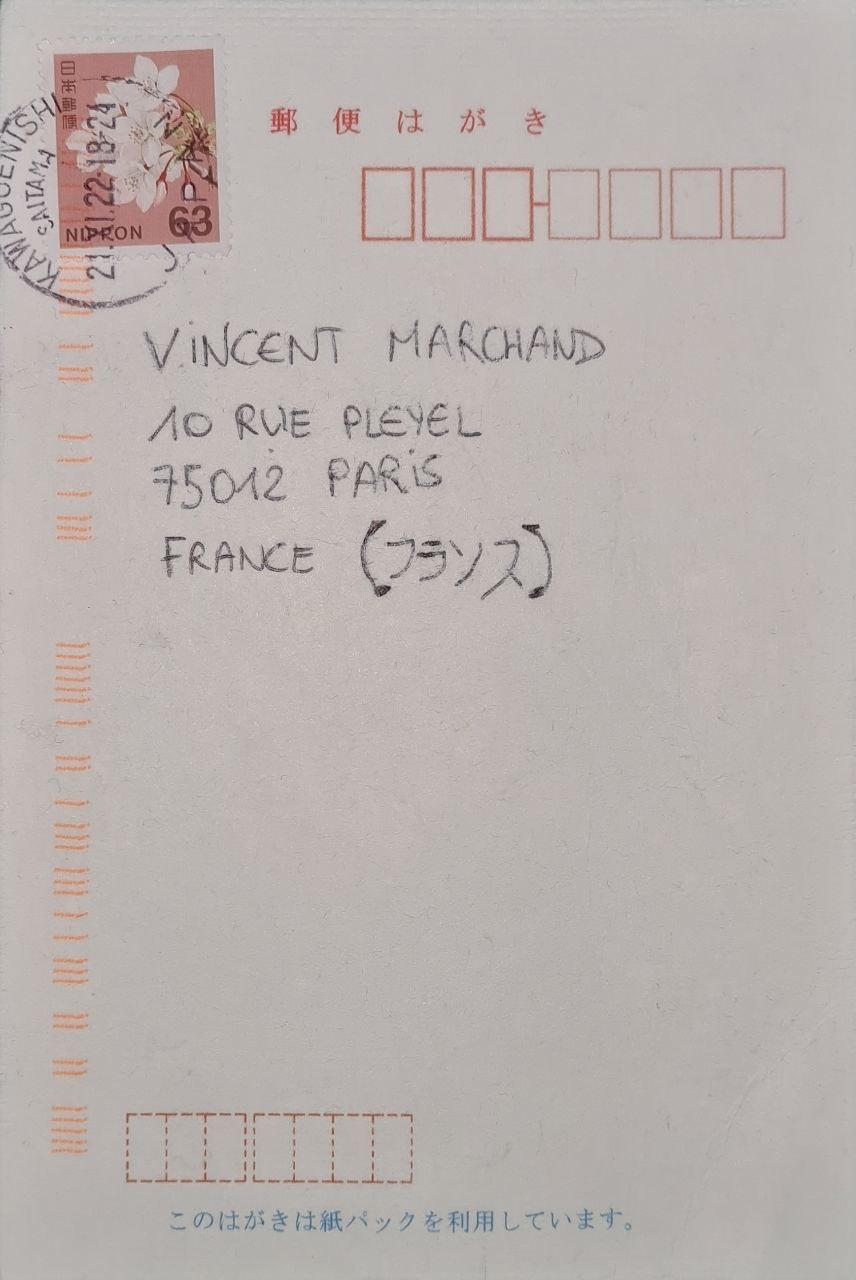 日本郵便
63
NIPPON
KAWAGUCHI NISHI
SAITAMA
21.XI.22 18-24
JAPAN
郵便はがき
VINCENT MARCHAND
10 RUE PLEYEL
75012 PARIS
FRANCE (フランス)
このはがきは紙パックを利用しています。